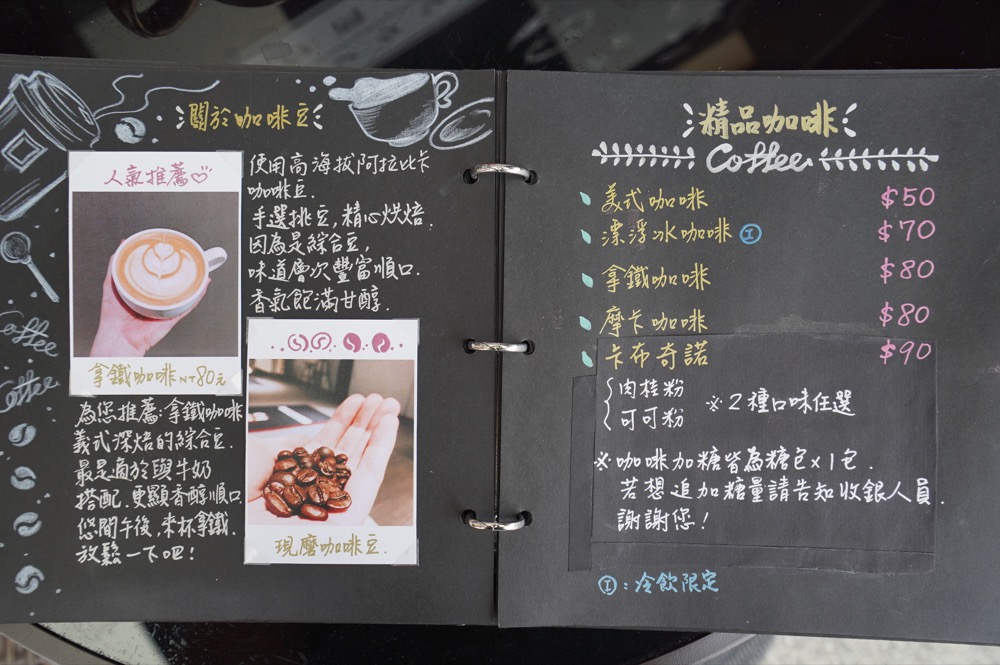 關於咖啡豆
人氣推薦
拿鐵咖啡NT80元
使用高海拔阿拉比卡
咖啡豆.
手選挑豆,精心烘焙.
因為是綜合豆,
味道層次豐富順口.
香氣飽滿甘醇.
為您推薦:拿鐵咖啡
義式深焙的綜合豆.
最是適於與牛奶
搭配.更顯香醇順口.
悠閒午後,來杯拿鐵.
放鬆一下吧!
現磨咖啡豆.
Coffee
Coffee
精品咖啡
Coffee
美式咖啡 $50
漂浮冰咖啡 I $70
拿鐵咖啡 $80
摩卡咖啡 $80
卡布奇諾 $90
肉桂粉
可可粉
※2種口味任選
※咖啡加糖皆為糖包x1包.
若想追加糖量請告知收銀人員.
謝謝您!
I:冷飲限定